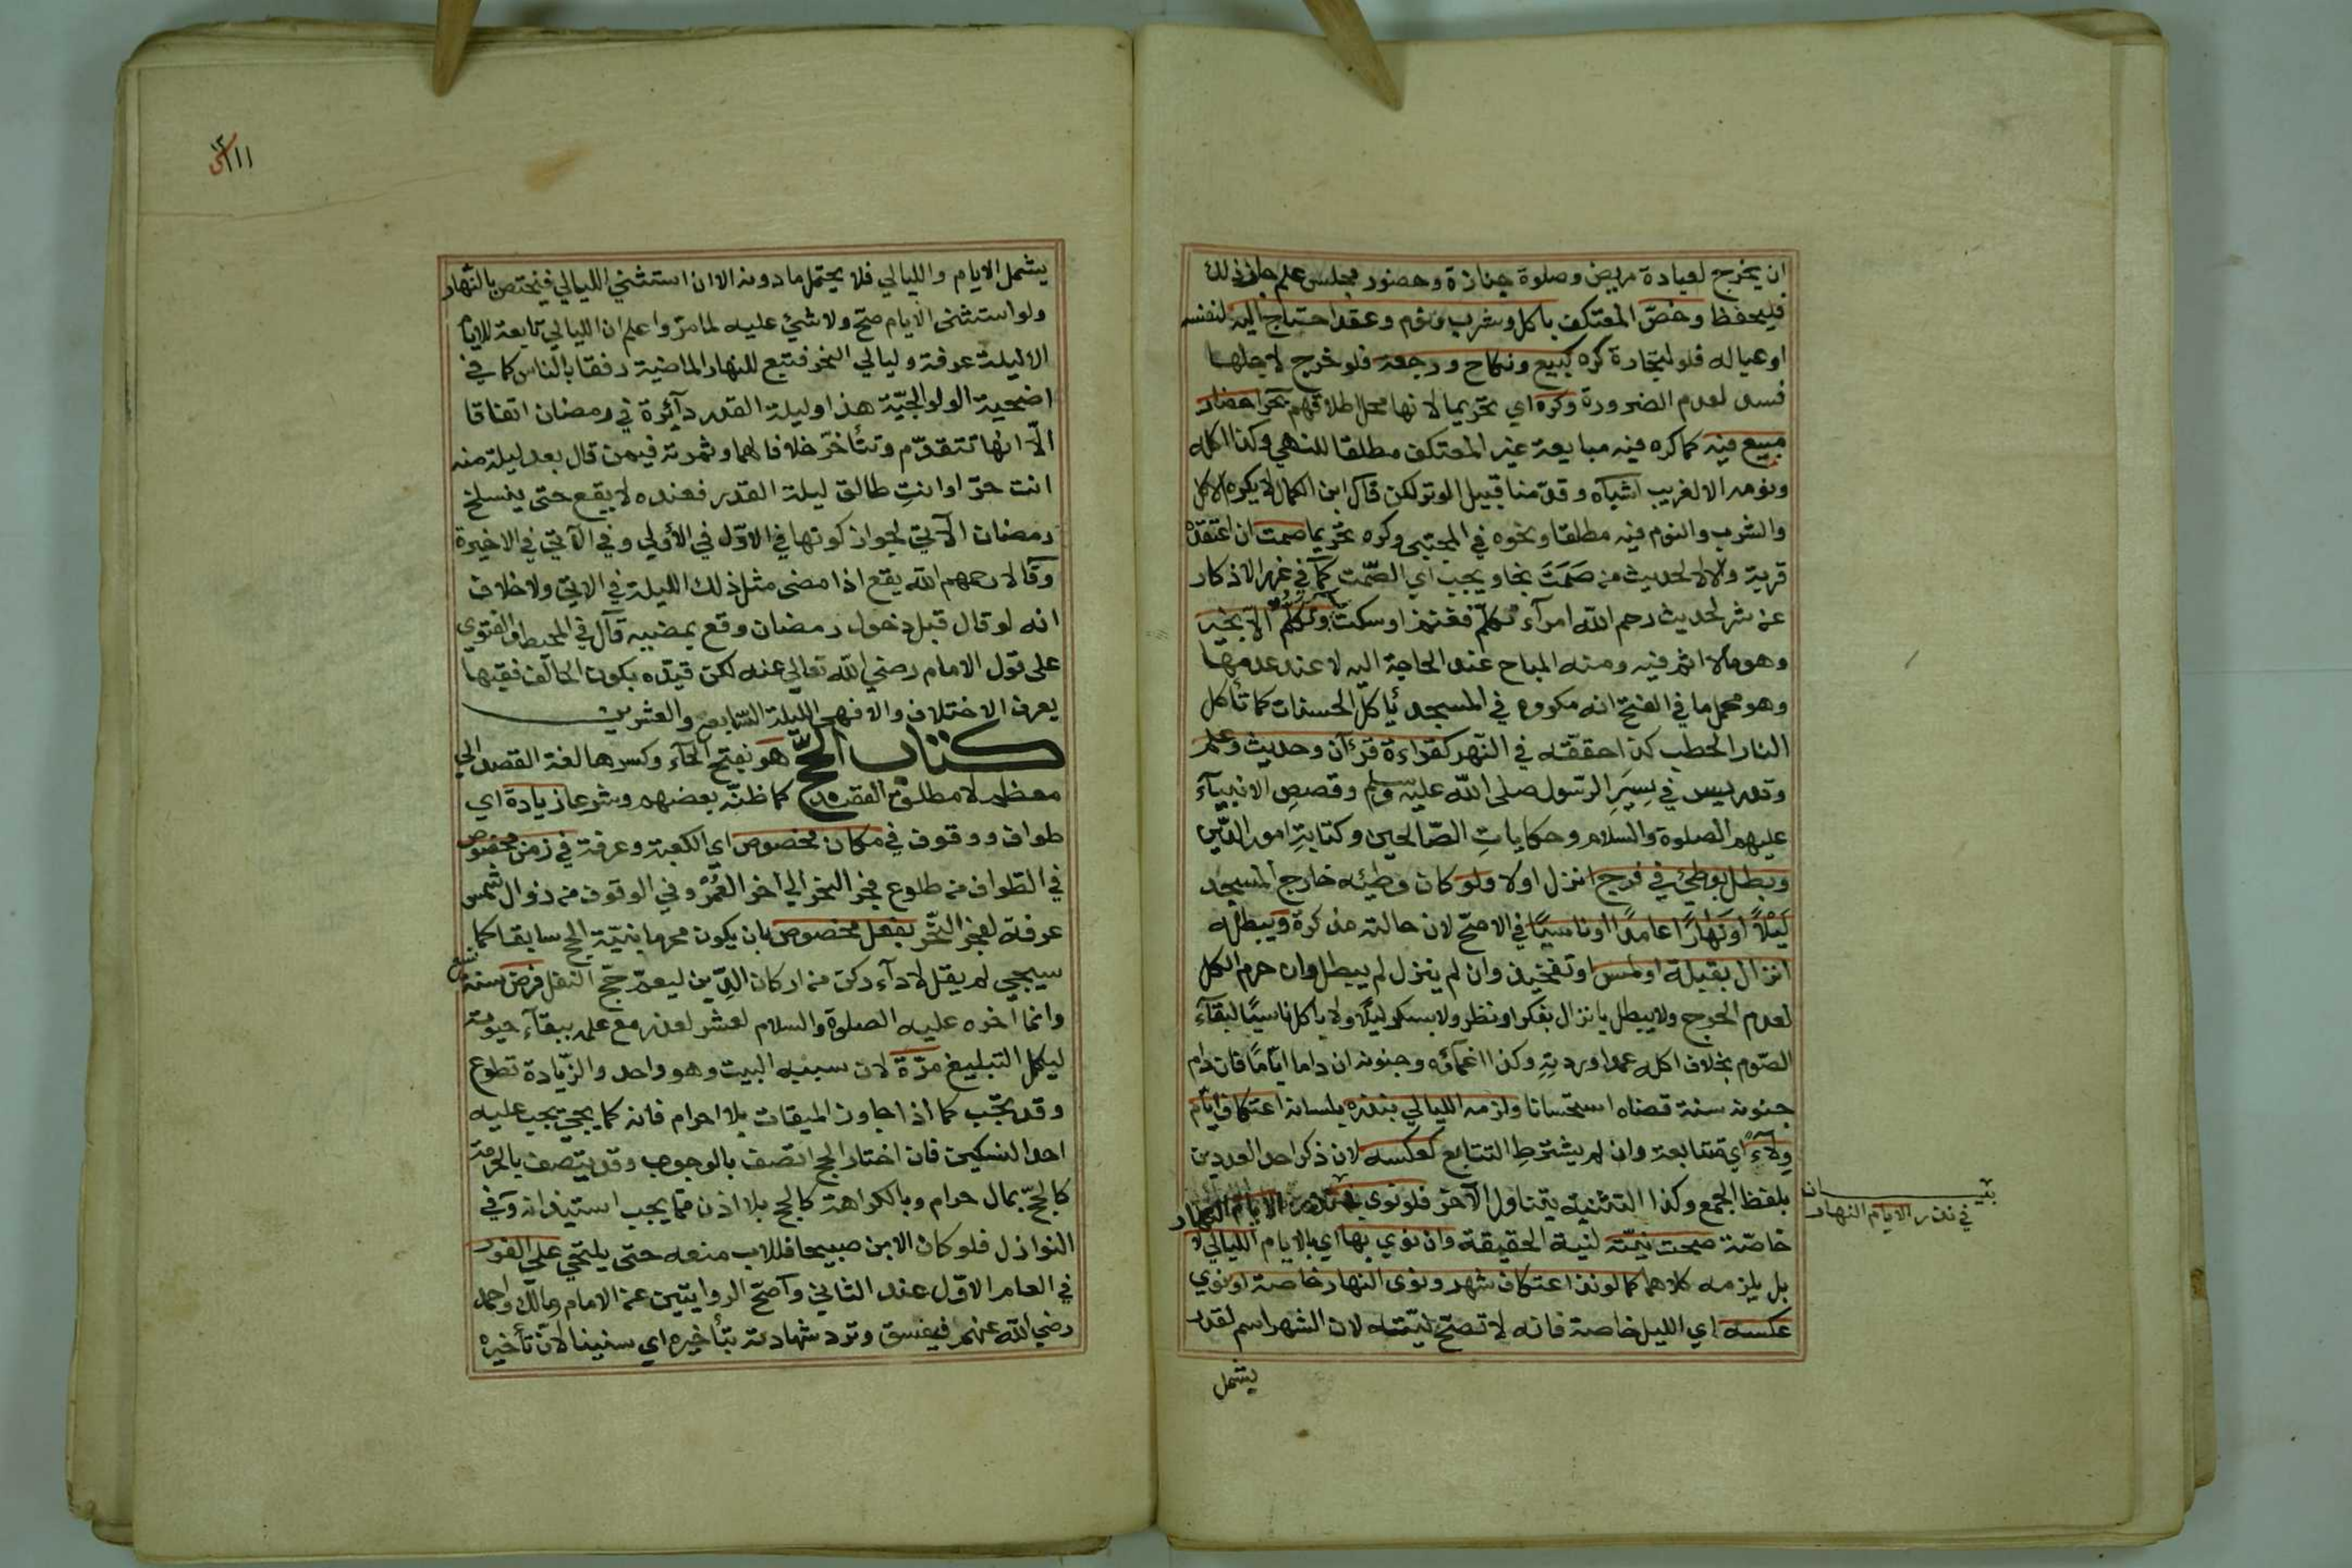 ان يخرج لعيادة مريض وصلوة جنازة وحضور مجلس علم جاز ذلك
فليحفظ وخصّ المعتكف باكل وشرب ونوم وعقد احتاج اليه لنفسه
او عياله فلو لتجارة كره كبيع ونكاح ورجعة فلو خرج لاجلها
فسد لعدم الضرورة وكره اي تحريما لانها محل اطلاقهم بحر احضار
مبيع فيه كما كره فيه مبايعة غير المعتكف مطلقا للنهي وكذا اكله
ونومه الا لغريب اشباه وقدّمنا قبيل الوتر لكن قال ابن الكمال لا يكره الاكل
والشرب والنوم فيه مطلقا ونحوه في المجتبى وكره تحريما صمت ان اعتقده
قربة والا لا لحديث من صَمَتَ نجا ويجب اي الصّمت كما في غرر الاذكار
عن شر لحديث رحم الله امرآء تكلّم فغنم او سكت وتكلّم الاّ بخير
وهو ما لا اثم فيه ومنه المباح عند الحاجة اليه لا عند عدمها
وهو محمل ما في الفتح انه مكروه في المسجد يأكل الحسنات كما تأكل
النار الحطب كذا حققه في النّهر كقراءة قرءآن وحديث وعلم
وتدريس في سِيَرِ الرّسول صلى الله عليه وسلم وقصصِ الانبيآء
عليهم الصلوة والسلام وحكاياتِ الصّالحين وكتابةِ امور الدّين
وبطل بوطئ في فرج انزل اولا ولو كان وطئه خارج المسجد
لَيْلاً او نَهارًا عامدًا او ناسيًا في الاصحّ لان حالته مذكرة ويبطل
انزال بقبلة او لمس او تفخيذ وان لم ينزل لم يبطل وان حرم الكل
لعدم الحرج ولا يبطل بانزال بفكر او نظر ولا بسكر ليلًا ولا باكل ناسيًا لبقآء
الصّوم بخلاف اكله عمدا وردتِهِ وكذا اغمآئه وجنونه ان داما ايّامًا فان دام
جنونه سنة قضاه استحسانا ولزمه الليالي بنذره بلسانه اعتكاف ايّام
ولآءً اي متتابعة وان لم يشترطِ التتابع كعكسه لان ذكر احد العددين
بلفظ الجمع وكذا التثنية يتناول الآخر فلو نوى في نذر الايام النهار
خاصّة صحت نيّته لنية الحقيقة وان نوي بها اي بالايام الليالي لا
بل يلزمه كلاهما كما لو نذر اعتكاف شهر ونوى النهار خاصة او نوي
عكسه اي الليل خاصة فانه لا تصحّ نيّته لان الشهر اسم لقدر
يشمل
بيـــان
في نذر الايام النهار
١١١
يشمل الايام والليالي فلا يحتمل ما دونه الا ان استثني الليالي فيختص بالنّهار
ولو استثنى الايام صحّ ولا شئ عليه لما مرّ واعلم ان الليالي تابعة للايام
الا ليلة عرفة وليالي النحر فتبع للنهار الماضية رفقا بالناس كما في
اضحية الولوالجيّة هذا وليلة القدر دآئرة في رمضان اتفاقا
الّا انها تتقدّم وتتأخّر خلافا لهما وثمرته فيمن قال بعد ليلة منه
انت حرّ او انتِ طالق ليلة القدر فعنده لا يقع حتى ينسلخ
رمضان الآتي لجواز كونها في الاوّل في الأولي وفي الآتي في الاخيرة
وقالا رحمهم الله يقع اذا مضى مثل ذلك الليلة في الاتي ولا خلاف
انه لو قال قبل دخول رمضان وقع بمضيه قال في المحيط والفتوي
على قول الامام رضي الله تعالى عنه لكن قيّده بكون الحالف فقيها
يعرف الاختلاف والا فهي الليلة السّابع والعشرين
كتاب الحجّ هو بفتح الحآء وكسرها لغة القصد الي
معظم لا مطلق القصد كما ظنّه بعضهم وشرعا زيادة اي
طواف ووقوف في مكان مخصوص اي الكعبة وعرفة في زمن مخصوص
في الطّواف من طلوع فجر النحر الي اخر العُمْر وفي الوقوف من زوال شمس
عرفة لفجر النّحر بفعل مخصوص بان يكون محرما بنيّة الحج سابقا كما
سيجيء لم يقل لاداء ركن من اركان الدّين ليعمّ حجّ النفل فرض سنة تسع
وانما اخره عليه الصلوة والسلام لعشر لعذر مع علمه ببقآء حيوته
ليكمل التبليغ مرّة لان سببه البيت وهو واحد والزّيادة تطوع
وقد يجب كما اذا جاوز الميقات بلا احرام فانه كما يجيئ يجب عليه
احد النسكين فان اختار الحج اتّصف بالوجوب وقد يتصف بالحرمة
كالحجّ بمال حرام وبالكراهة كالحج بلا اذن ممّا يجب استيذانه وفي
النوازل فلو كان الابن صبيحا فللاب منعه حتى يلتحي على الفور
في العام الاوّل عند الثاني واصحّ الروايتين عن الامام ومالك واحمد
رضي الله عنهم فيفسق وترد شهادته بتأخيره اي سنينا لانّ تأخيره